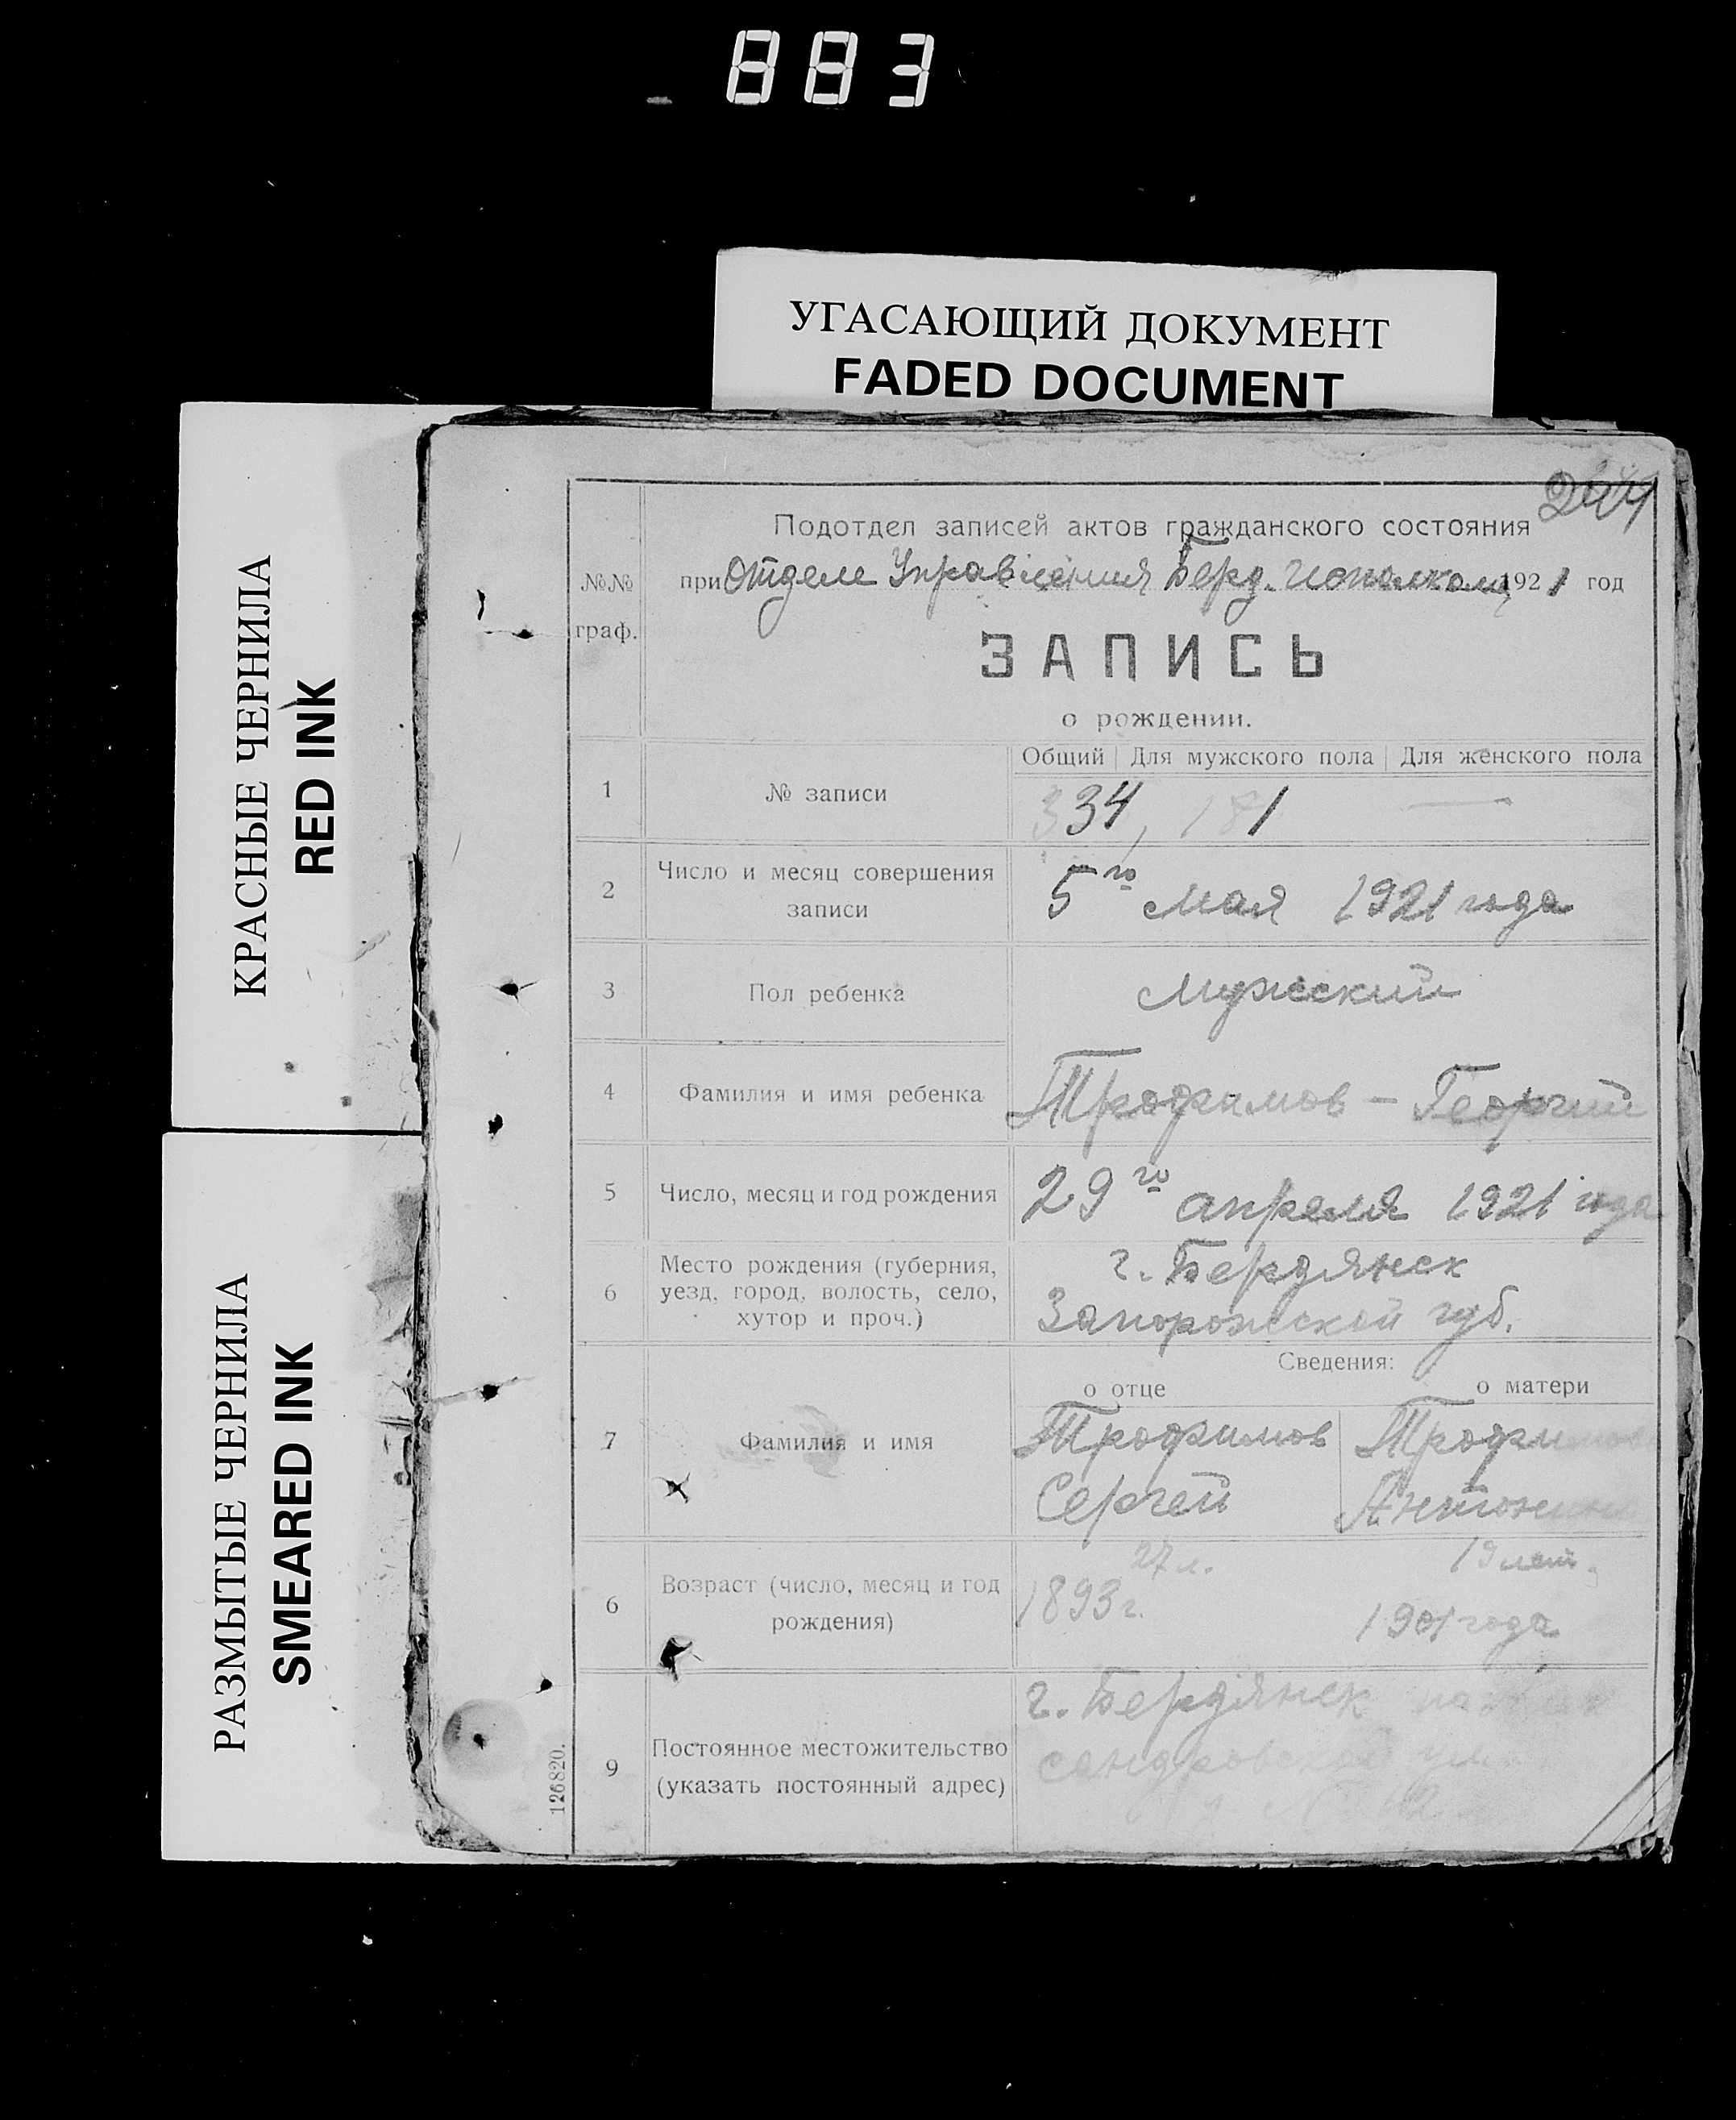 883
УГАСАЮЩИЙ ДОКУМЕНТ
FADED DOCUMENT
КРАСНЫЕ ЧЕРНИЛА
RED INK
РАЗМЫТЫЕ ЧЕРНИЛА
SMEARED INK
244
Подотдел записей актов гражданского состояния
№№ граф.
при Отделе Управления Берд. Исполкома 1921 год
ЗАПИСЬ
о рождении.
Общий Для мужского пола Для женского пола
1 № записи 334, 181 —
2 Число и месяц совершения записи 5го мая 1921 года
3 Пол ребенка мужский
4 Фамилия и имя ребенка Трофимов – Георгий
5 Число, месяц и год рождения 29го апреля 1921 года
6 Место рождения (губерния, г. Бердянск
уезд, город, волость, село, хутор и проч.) Запорожской губ.
Сведения:
о отце о матери
7 Фамилия и имя Трофимов Трофимова
Сергей Антонина
27 л. 19 лет.
6 Возраст (число, месяц и год рождения) 1893 г. 1901 года
г. Бердянск
9 Постоянное местожительство
(указать постоянный адрес)
126820.